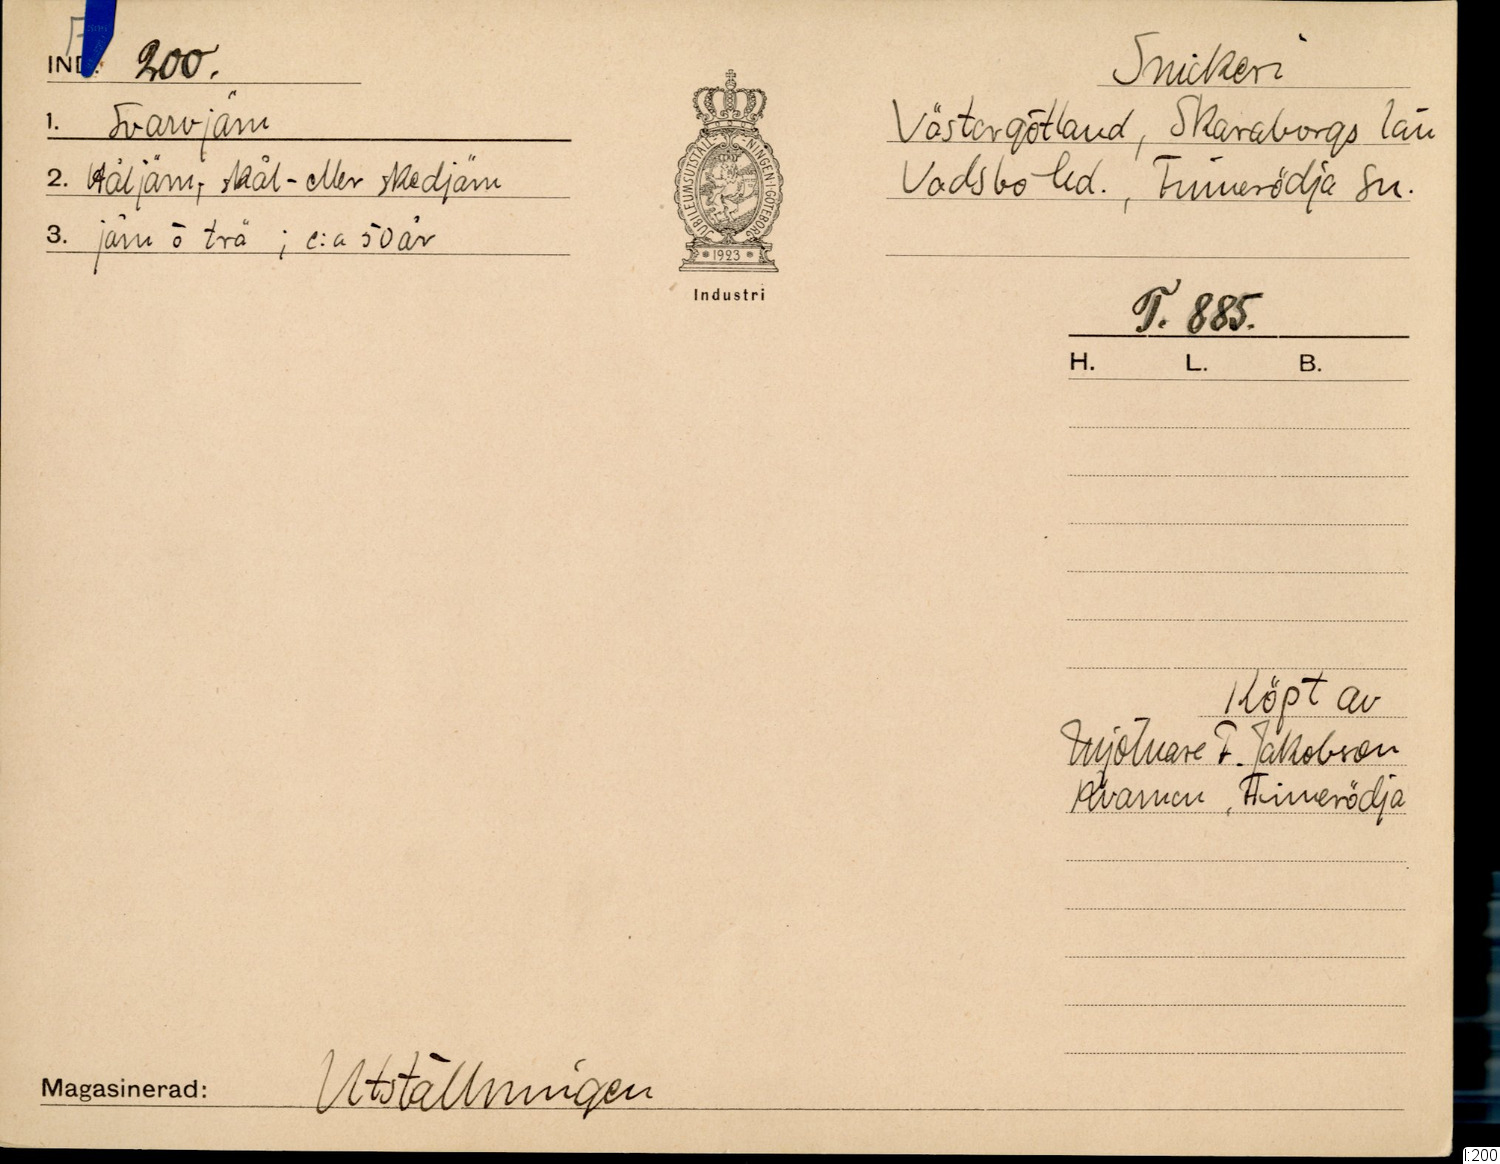 IND: 200.
1. Svarvjärn
2. Håljärn, skål- eller skedjärn
3. järn o trä ; c:a 50 år
JUBILEUMSUTSTÄLLNINGEN·I·GÖTEBORG
1923
Industri
Snickeri
Västergötland, Skaraborgs län
Vadsbo hd., Finnerödja sn.
T. 885.
H. L. B.
Köpt av
Mjölnare F. Jakobson
Kvarnen, Finnerödja
Magasinerad: Utställningen
I:200